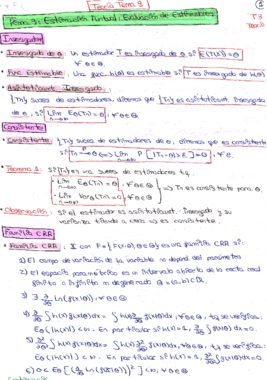 Teoría Tema 3
①
Tema 3: Estimación Puntual. Evaluación de Estimadores
T3
Teoría
Insesgadez
• Insesgado de θ: Un estimador T es insesgado de θ si E(T(X)) = θ
∀ θ ∈ Θ.
• Func. estimable: Una func. h(θ) es estimable si T es insesgado de h(θ)
• Asintóticament. Insesgado:
{Tn} suces. de estimadores, diremos que {Tn} es asintóticament. insesgada
de θ, si Lim n→∞ Eθ(Tn) = θ, ∀ θ ∈ Θ
Consistente
• Consistente: {Tn} suces. de estimadores de θ, diremos que es consistente
si Tn →P θ ⇔ Lim n→∞ P[|Tn-θ|≥ε] = 0, ∀ε.
• Teorema 1: Si {Tn} es una suces. de estimadores t.q.
• Lim n→∞ Eθ(Tn) = θ, ∀θ∈Θ
• Lim n→∞ Varθ(Tn) = 0, ∀θ∈Θ
⇒ Tn es consistente para θ.
• Observación: Si el estimador es asintóticament. insesgado y su
varianza tiende a cero ⇒ es consistente.
Familia CRR
• Familia CRR: X con F = {F(x,θ), θ∈Θ} es una familia CRR si:
1) El campo de variación de la variable no depend. del parámetro
2) El espacio paramétrico es un intervalo abierto de la recta real
finito o infinito n degenerado Θ = (a,b) ⊂ ℝ.
3) ∃ ∂/∂θ Ln(f(x,θ)), ∀θ∈Θ
4) ∂/∂θ ∫ h(x) f(x,θ) dx = ∫ h(x) ∂/∂θ f(x,θ) dx, ∀θ∈Θ, t.q. se verifique:
Eθ(h(x)) < ∞. En particular si h(x) = 1, ∂/∂θ ∫ f(x,θ) dx = 0.
5) ∂²/∂θ² ∫ h(x) f(x,θ) dx = ∫ h(x) ∂²/∂θ² f(x,θ) dx, ∀θ∈Θ, t.q. se verifique:
Eθ(h(x)) < ∞. En particular si h(x) = 1, ∂²/∂θ² ∫ f(x,θ) dx = 0.
6) 0 < Eθ[(∂/∂θ Ln(f(x,θ)))²] < ∞, ∀θ∈Θ